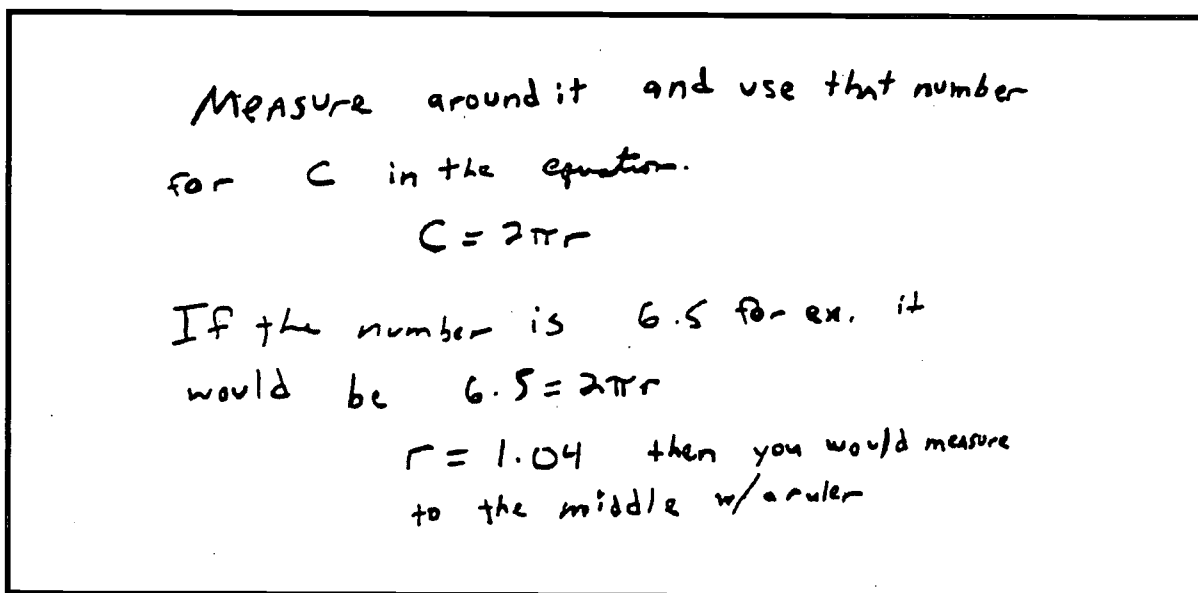 Measure around it and use that number
for C in the equation.
C = 2πr
If the number is 6.5 for ex. it
would be 6.5 = 2πr
r = 1.04 then you would measure
to the middle w/ a ruler